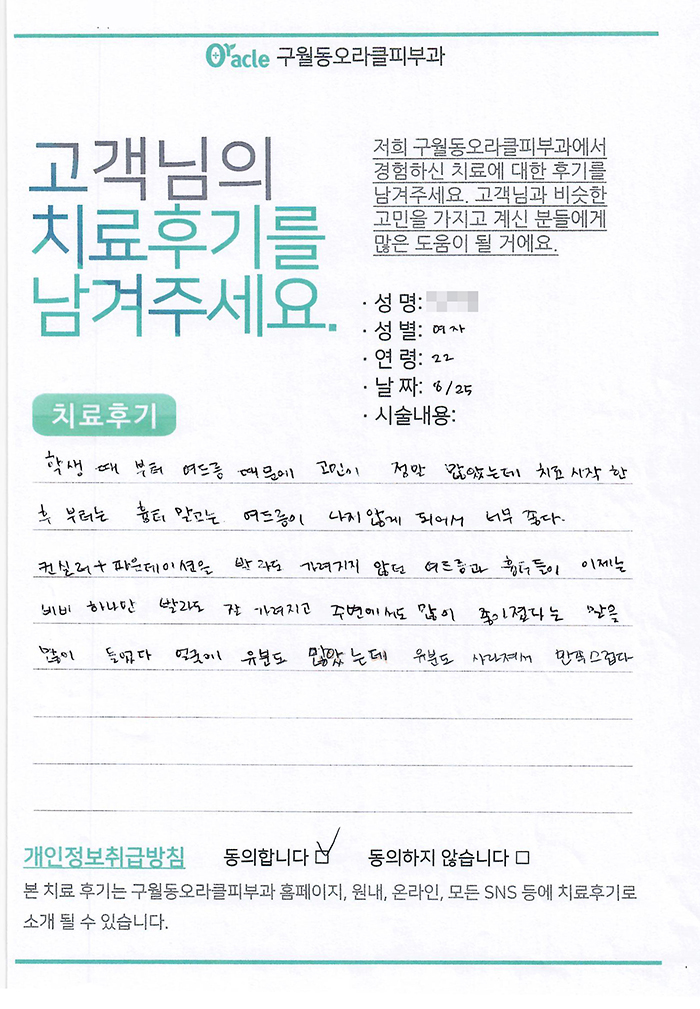 Oracle 구월동오라클피부과
고객님의
치료후기를
남겨주세요.
저희 구월동오라클피부과에서
경험하신 치료에 대한 후기를
남겨주세요. 고객님과 비슷한
고민을 가지고 계신 분들에게
많은 도움이 될 거에요.
· 성 명:
· 성 별: 여자
· 연 령: 22
· 날 짜: 8/25
· 시술내용:
치료후기
학생 때 부터 여드름 때문에 고민이 정말 많았는데 치료 시작 한
후 부터는 흉터 말고는 여드름이 나지 않게 되어서 너무 좋다.
컨실러+파운데이션을 발라도 가려지지 않던 여드름과 흉터들이 이제는
비비 하나만 발라도 잘 가려지고 주변에서도 많이 좋아졌다는 말을
많이 들었다 얼굴에 유분도 많았는데 유분도 사라져서 만족스럽다
개인정보취급방침 동의합니다 ☑ 동의하지 않습니다 □
본 치료 후기는 구월동오라클피부과 홈페이지, 원내, 온라인, 모든 SNS 등에 치료후기로
소개 될 수 있습니다.